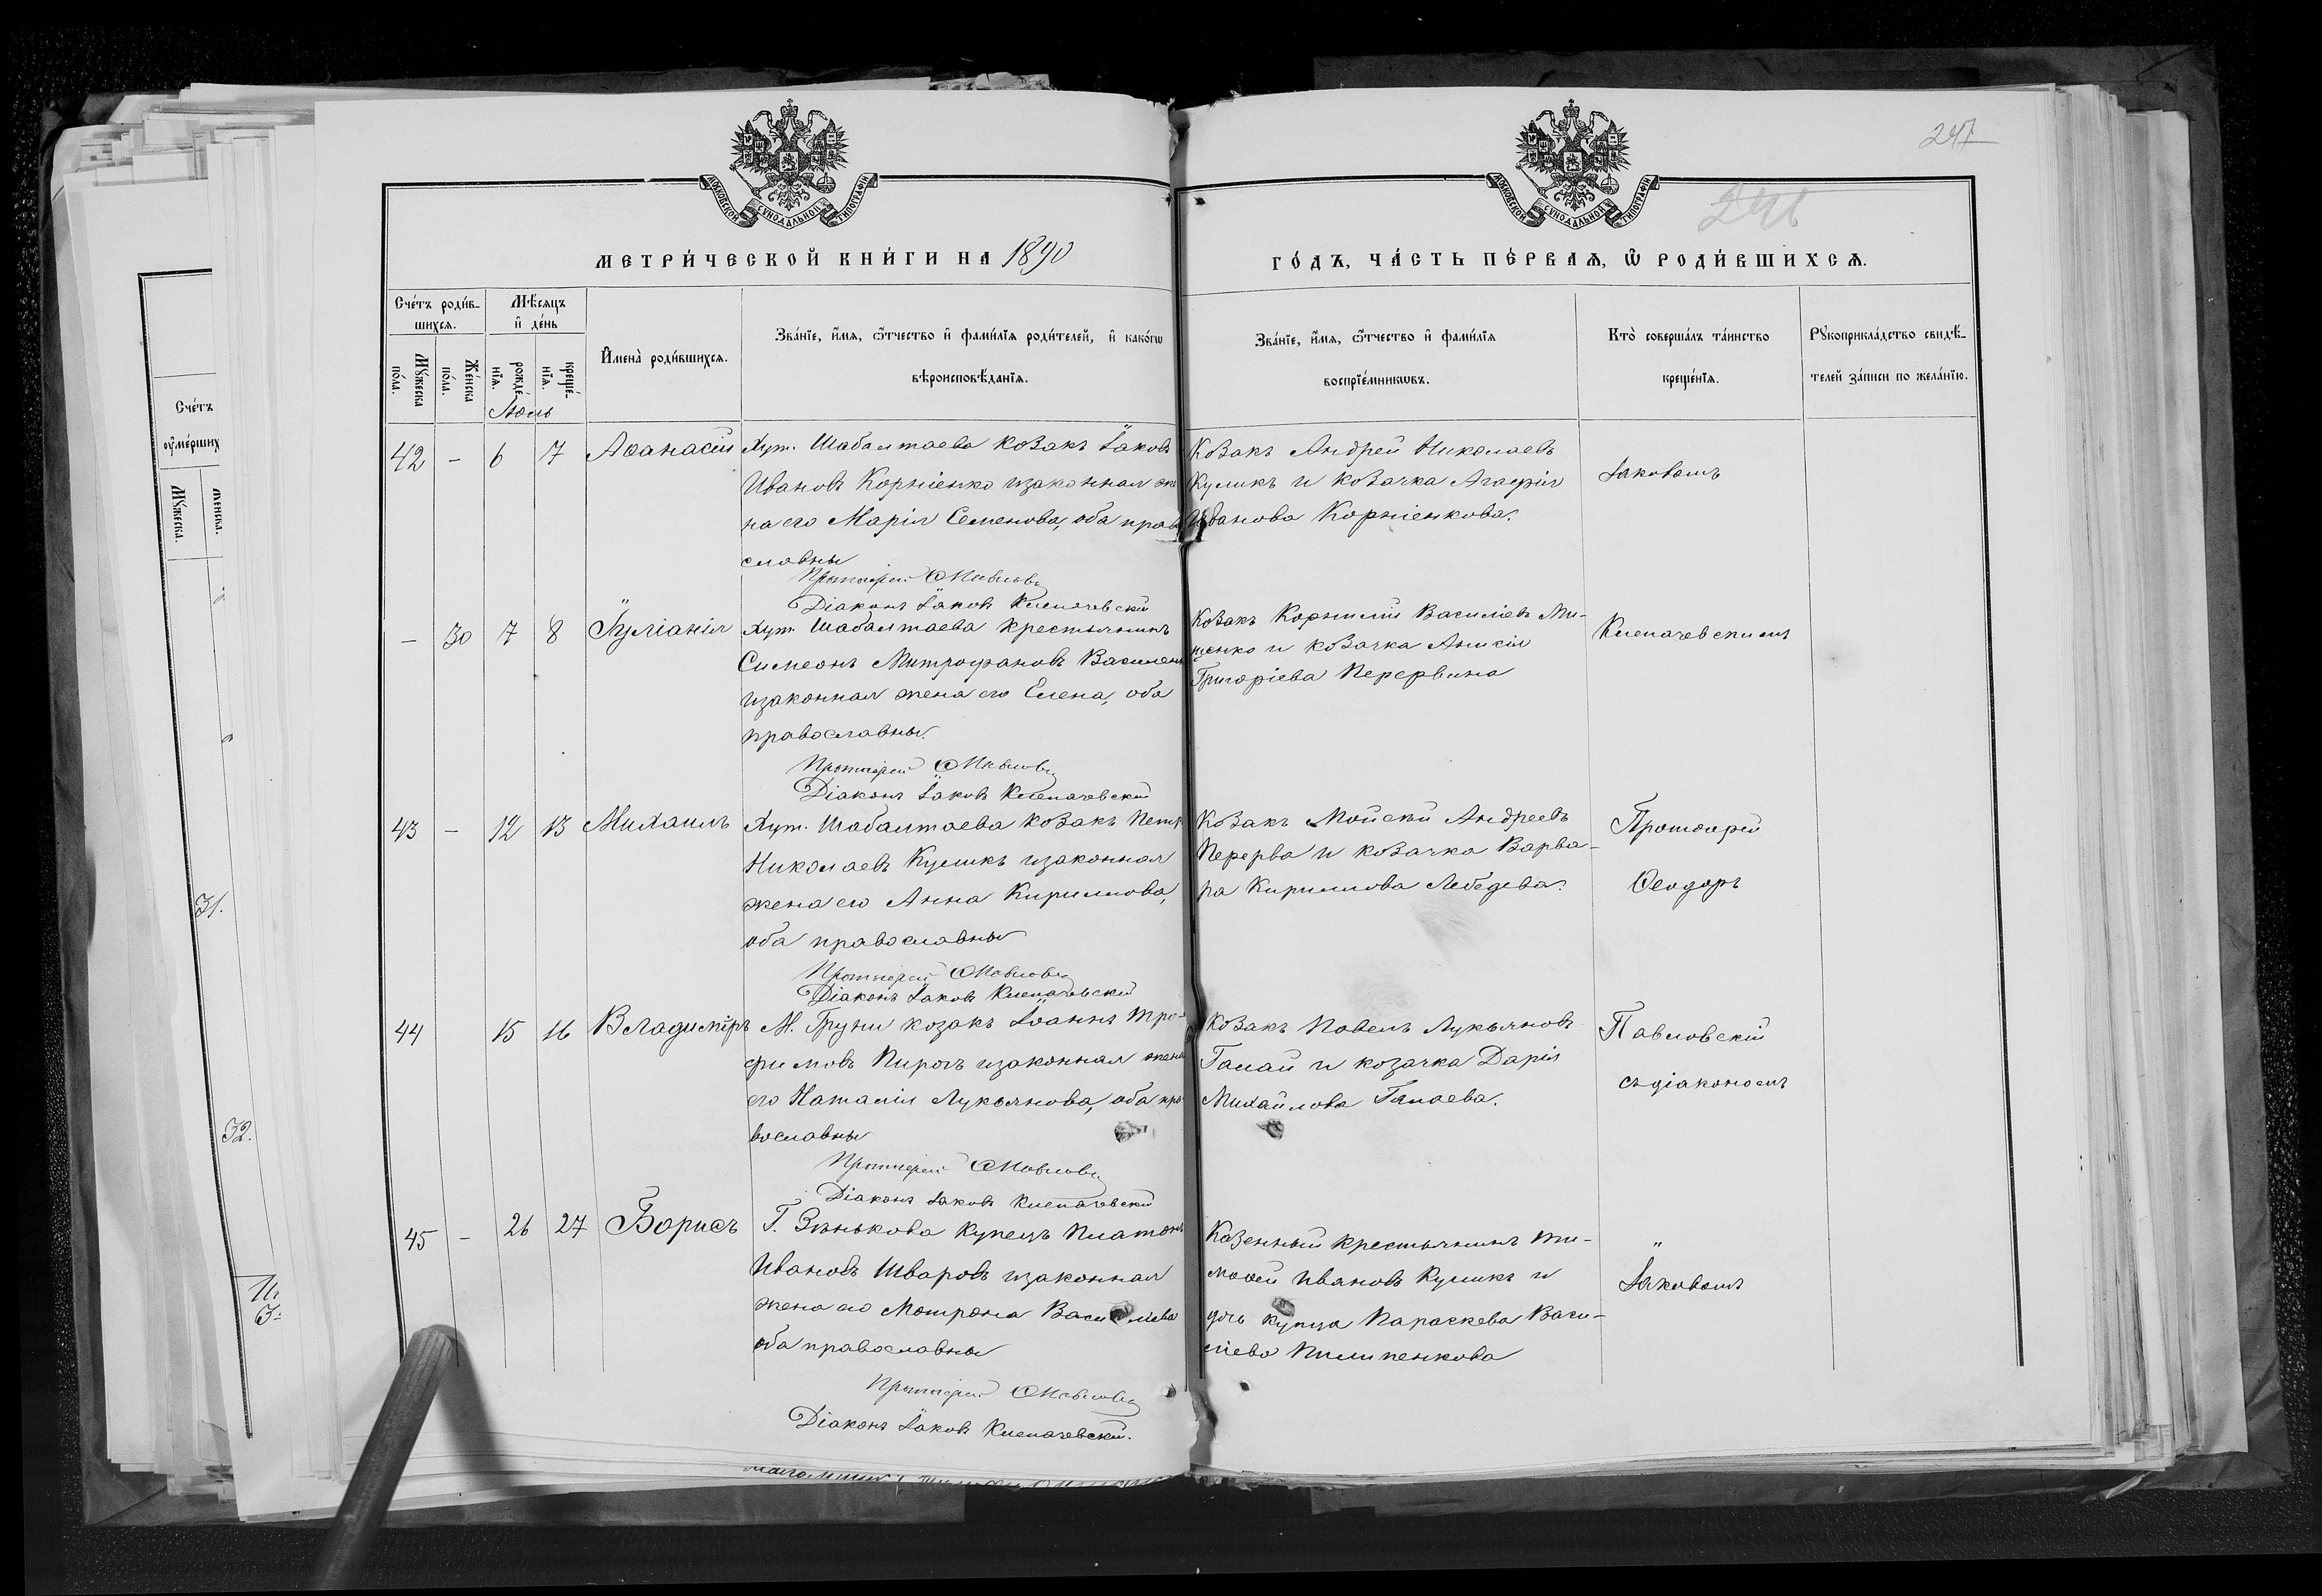 247
246
МОСКОВСКОЙ СѴНОДАЛЬНОЙ ТИПОГРАФІИ
МОСКОВСКОЙ СѴНОДАЛЬНОЙ ТИПОГРАФІИ
МЕТРИ́ЧЕСКОЙ КНИ́ГИ НА 1890
ГО́ДЪ, ЧА́СТЬ ПЕ́РВАѦ, Ѡ҆ РОДИ́ВШИХСѦ.
Сче́тъ роди́в-
шихсѧ.
Мѣ́сѧцъ
и҆ де́нь
Мꙋ́жеска
по́ла.
Же́нска
по́ла.
рожде́-
нїѧ.
креще́-
нїѧ.
И҆мена̀ роди́вшихсѧ.
Зва́нїе, и҆́мѧ, ѻ҆́тчество и҆ фами́лїѧ роди́телей, и҆ како́гѡ
вѣроисповѣ́данїѧ.
Зва́нїе, и҆́мѧ, ѻ҆́тчество и҆ фами́лїѧ
воспрїе́мникѡвъ.
Кто̀ соверша́лъ та́инство
креще́нїѧ.
Рꙋкоприкла́дство свидѣ́-
телей за́писи по жела́нїю.
Іюль
42 – 6 7 Аѳанасій
Хут. Шабалтаева козакъ Іаковъ
Ивановъ Корніенко изаконная же
на его Марія Семенова, оба право
славны
Протоіерей
Діаконъ Іаковъ Клепачевскій
Козакъ Андрей Николаевъ
Куликъ и козачка Агафія
Иванова Корніенкова.
Іаковомъ
– 30 7 8 Іуліанія
Хут. Шабалтаева крестьянинъ
Симеонъ Митрофановъ Василен
изаконная жена его Елена, оба
православны.
Протоіерей
Діаконъ Іаковъ Клепачевскій
Козакъ Корнилій Василіевъ Ми-
щенко и козачка Анисія
Григоріева Перервина
Клепачевскимъ
43 – 12 13 Михаилъ
Хут. Шабалтаева козакъ Петр
Николаевъ Куликъ изаконная
жена его Анна Кирилова,
оба православны
Протоіерей
Діаконъ Іаковъ Клепачевскій
Козакъ Мойсей Андреевъ
Перерва и козачка Варва-
ра Кирилова Лебедева.
Протоіерей
Ѳеодоръ
44 15 16 Владиміръ
М. Груни козакъ Іоаннъ Тро-
фимовъ Пирогъ изаконная жена
его Наталія Лукьянова, оба пра
вославны
Протоіерей
Діаконъ Іаковъ Клепачевскій
Козакъ Павелъ Лукьяновъ
Галай и козачка Дарія
Михайлова Галаева.
Павловскій
съ діакономъ
45 – 26 27 Борисъ
Г. Зѣнькова купецъ Платонъ
Ивановъ Шваровъ изаконная
жена его Мотрона Василіева
оба православны
Протоіерей
Діаконъ Іаковъ Клепачевскій.
Казенный крестьянинъ Ти-
моѳей Ивановъ Куликъ и
дочь купца Параскева Васи-
ліева Пилипенкова
Іаковомъ
Сче́тъ
ᲂу҆ме́рших
Мꙋ́жеска.
Же́нска.
31.
32.